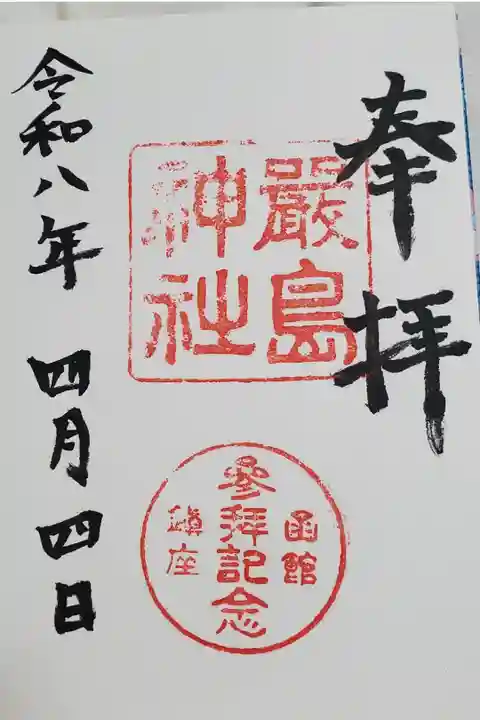 奉拝
嚴島
神社
函館
參拜記念
鎮座
令和八年 四月 四日